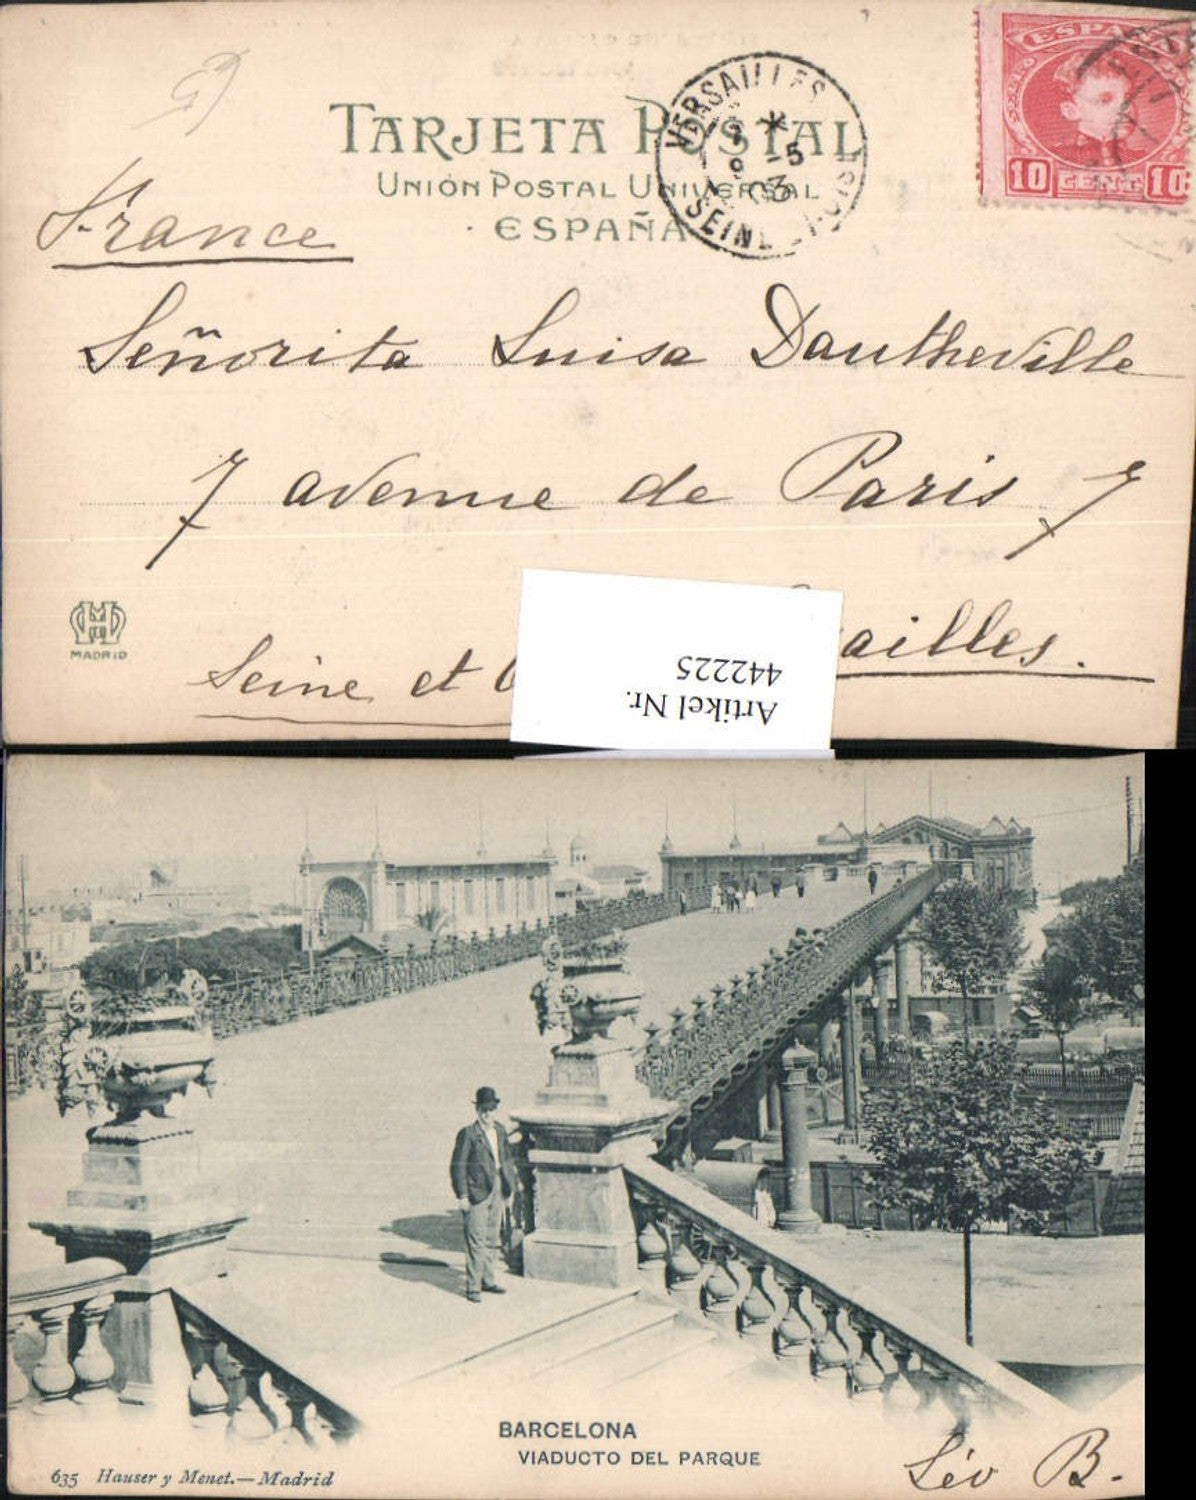 TARJETA POSTAL
UNIÓN POSTAL UNIVERSAL
ESPAÑA
VERSAILLES
9 -5
03
SEINE
ESPAÑA
10 CENT 10
France
Señorita Luisa Dautheville
7 avenue de Paris 7
ailles.
Seine et
MADRID
Artikel Nr.
442225
BARCELONA
VIADUCTO DEL PARQUE
635 Hauser y Menet.—Madrid
Léo B.